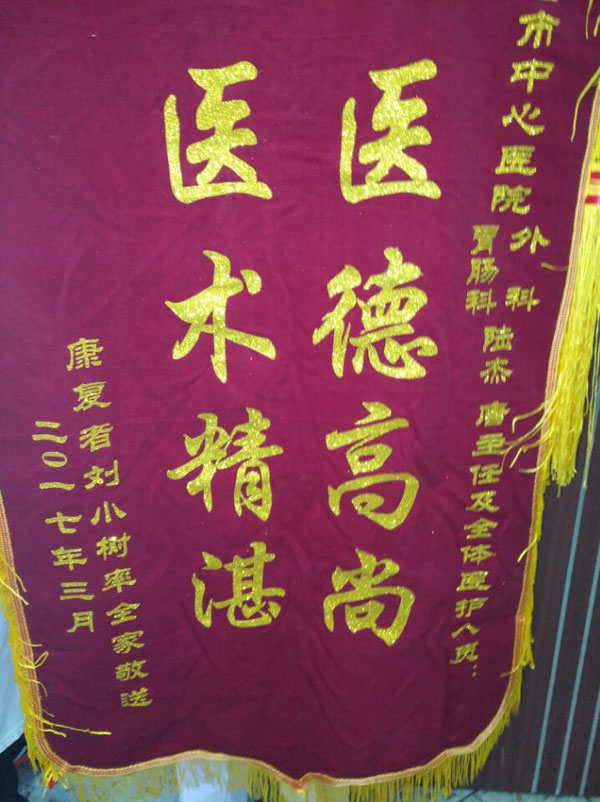 市中心医院外、科
胃肠科 陆杰 唐主任及全体医护人员：
医德高尚
医术精湛
康复者刘小树率全家敬送
二〇一七年三月